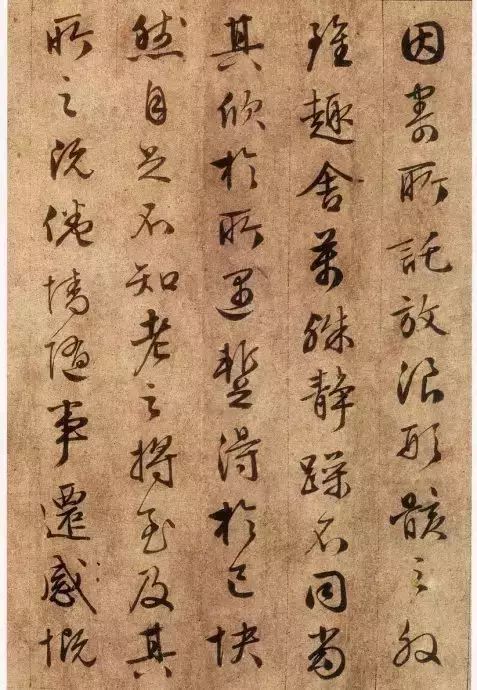 因寄所託放浪形骸之外
雖趣舍萬殊静躁不同當
其欣於所遇蹔得於己快
然自足不知老之將至及其
所之既倦情隨事遷感慨